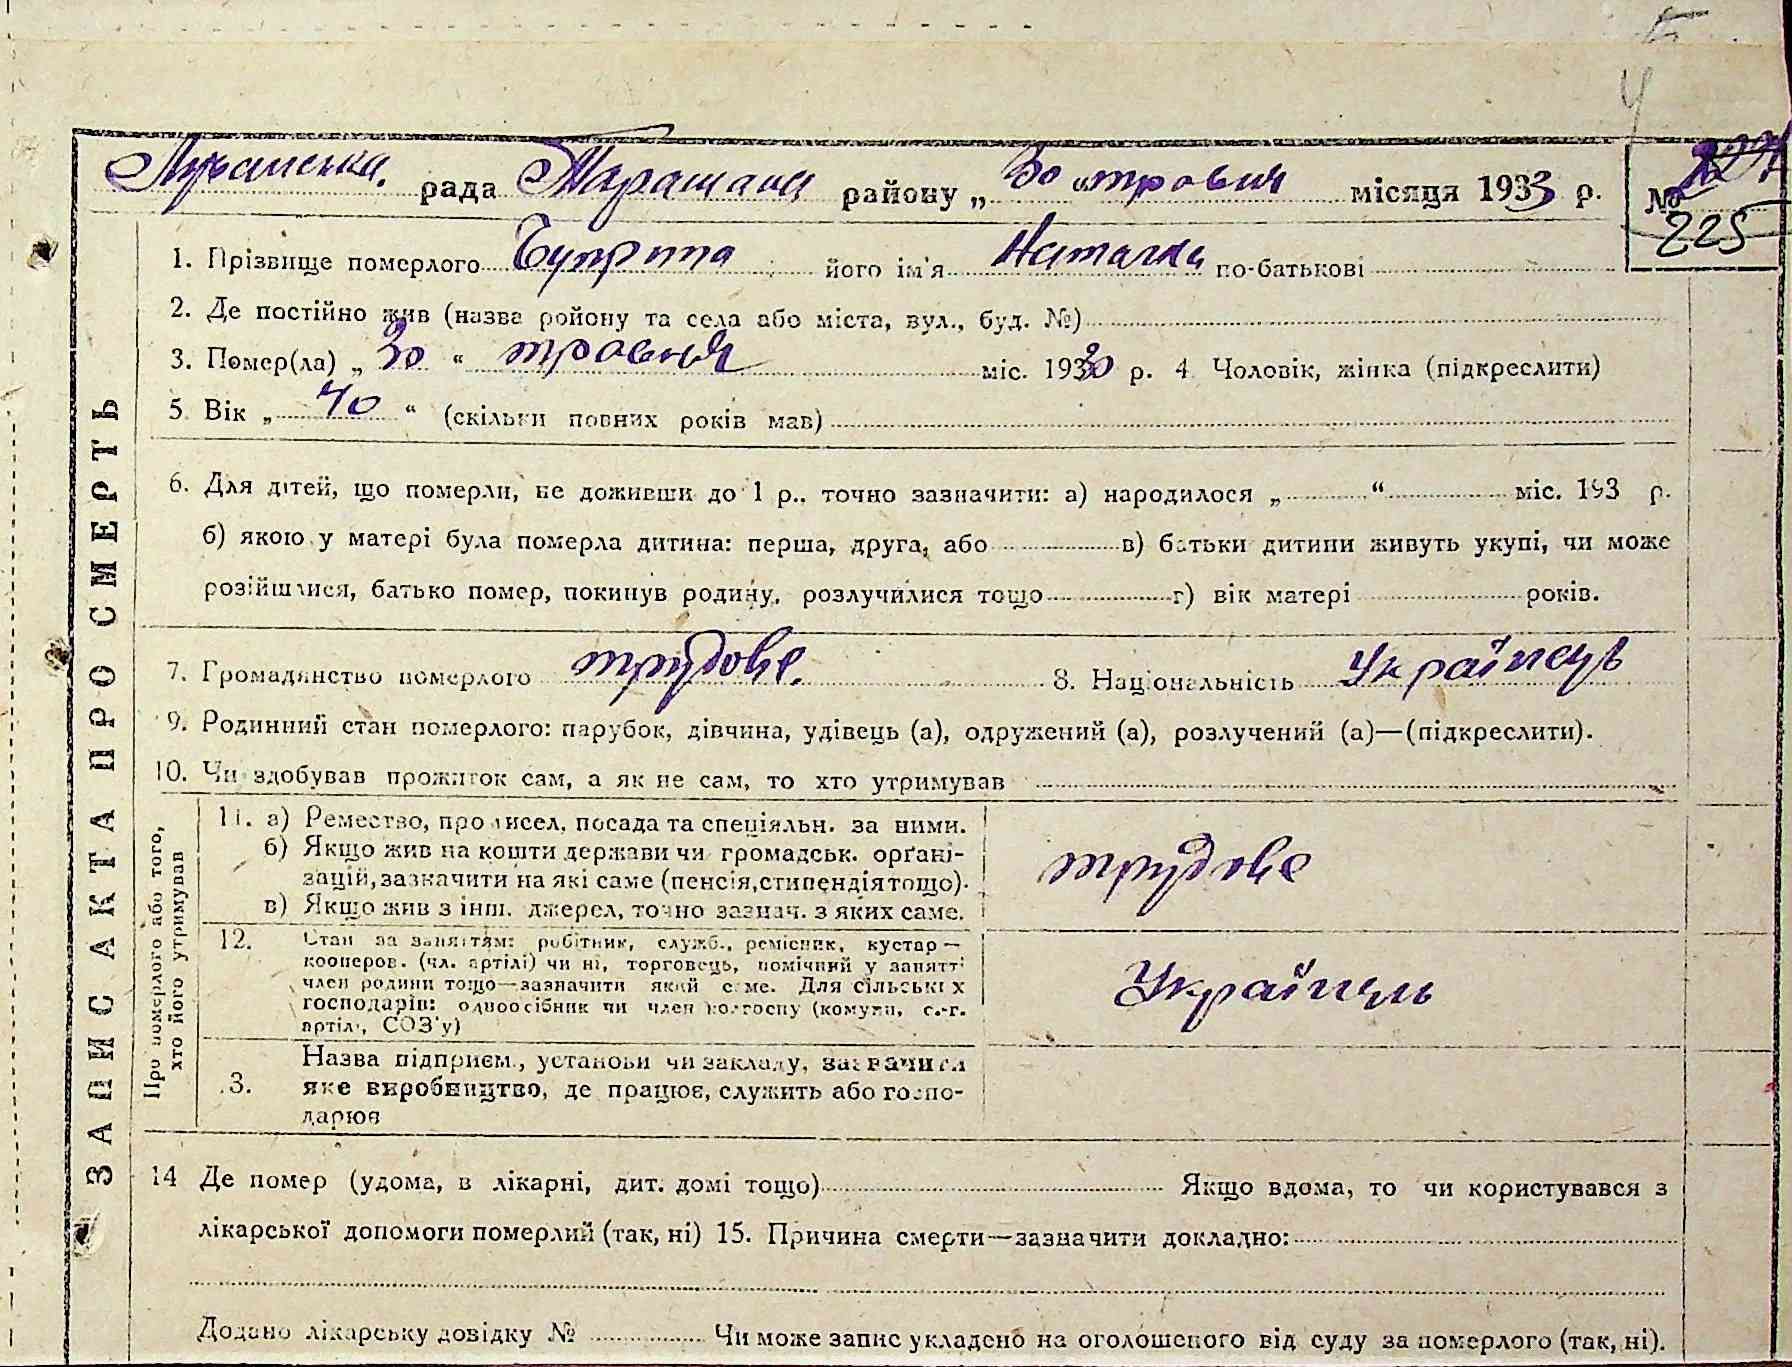 рада Таращана району „ 30 “ травня місяця 1933 р. № 225
1. Прізвище померлого Чуприна його ім'я Наталка по-батькові
2. Де постійно жив (назва ройону та села або міста, вул., буд. №)
3. Помер(ла) „ 30 “ травня міс. 1933 р. 4 Чоловік, жінка (підкреслити)
5 Вік „ 40 “ (скільки повних років мав)
6. Для дітей, що померли, не доживши до 1 р.. точно зазначити: а) народилося „ “ міс. 193 р.
б) якою у матері була померла дитина: перша, друга, або в) батьки дитини живуть укупі, чи може
розійшлися, батько помер, покинув родину, розлучилися тощо г) вік матері років.
7. Громадянство померлого трудове. 8. Національність Українець
9. Родинний стан померлого: парубок, дівчина, удівець (а), одружений (а), розлучений (а)—(підкреслити).
10. Чи здобував прожиток сам, а як не сам, то хто утримував
ЗАПИС АКТА ПРО СМЕРТЬ
Про померлого або того,
хто його утримував
11. а) Ремество, промисел, посада та спеціяльн. за ними.
б) Якщо жив на кошти держави чи громадськ. орґані-
зацій, зазначити на які саме (пенсія, стипендія тощо).
в) Якщо жив з інш. джерел, точно зазнач. з яких саме.
трудове
12. Стан за заняттям: робітник, служб., ремісник, кустар —
кооперов. (чл. артілі) чи ні, торговець, помічний у занятті
член родини тощо—зазначити який саме. Для сільських
господарів: одноосібник чи член колгоспу (комуни, с.-г.
артілі, СОЗ'у)
Українець
13. Назва підприєм., установи чи закладу, зазначити
яке виробництво, де працює, служить або госпо-
дарює
14 Де помер (удома, в лікарні, дит. домі тощо) Якщо вдома, то чи користувався з
лікарської допомоги померлий (так, ні) 15. Причина смерти—зазначити докладно:
Додано лікарську довідку № Чи може запис укладено на оголошеного від суду за померлого (так, ні).